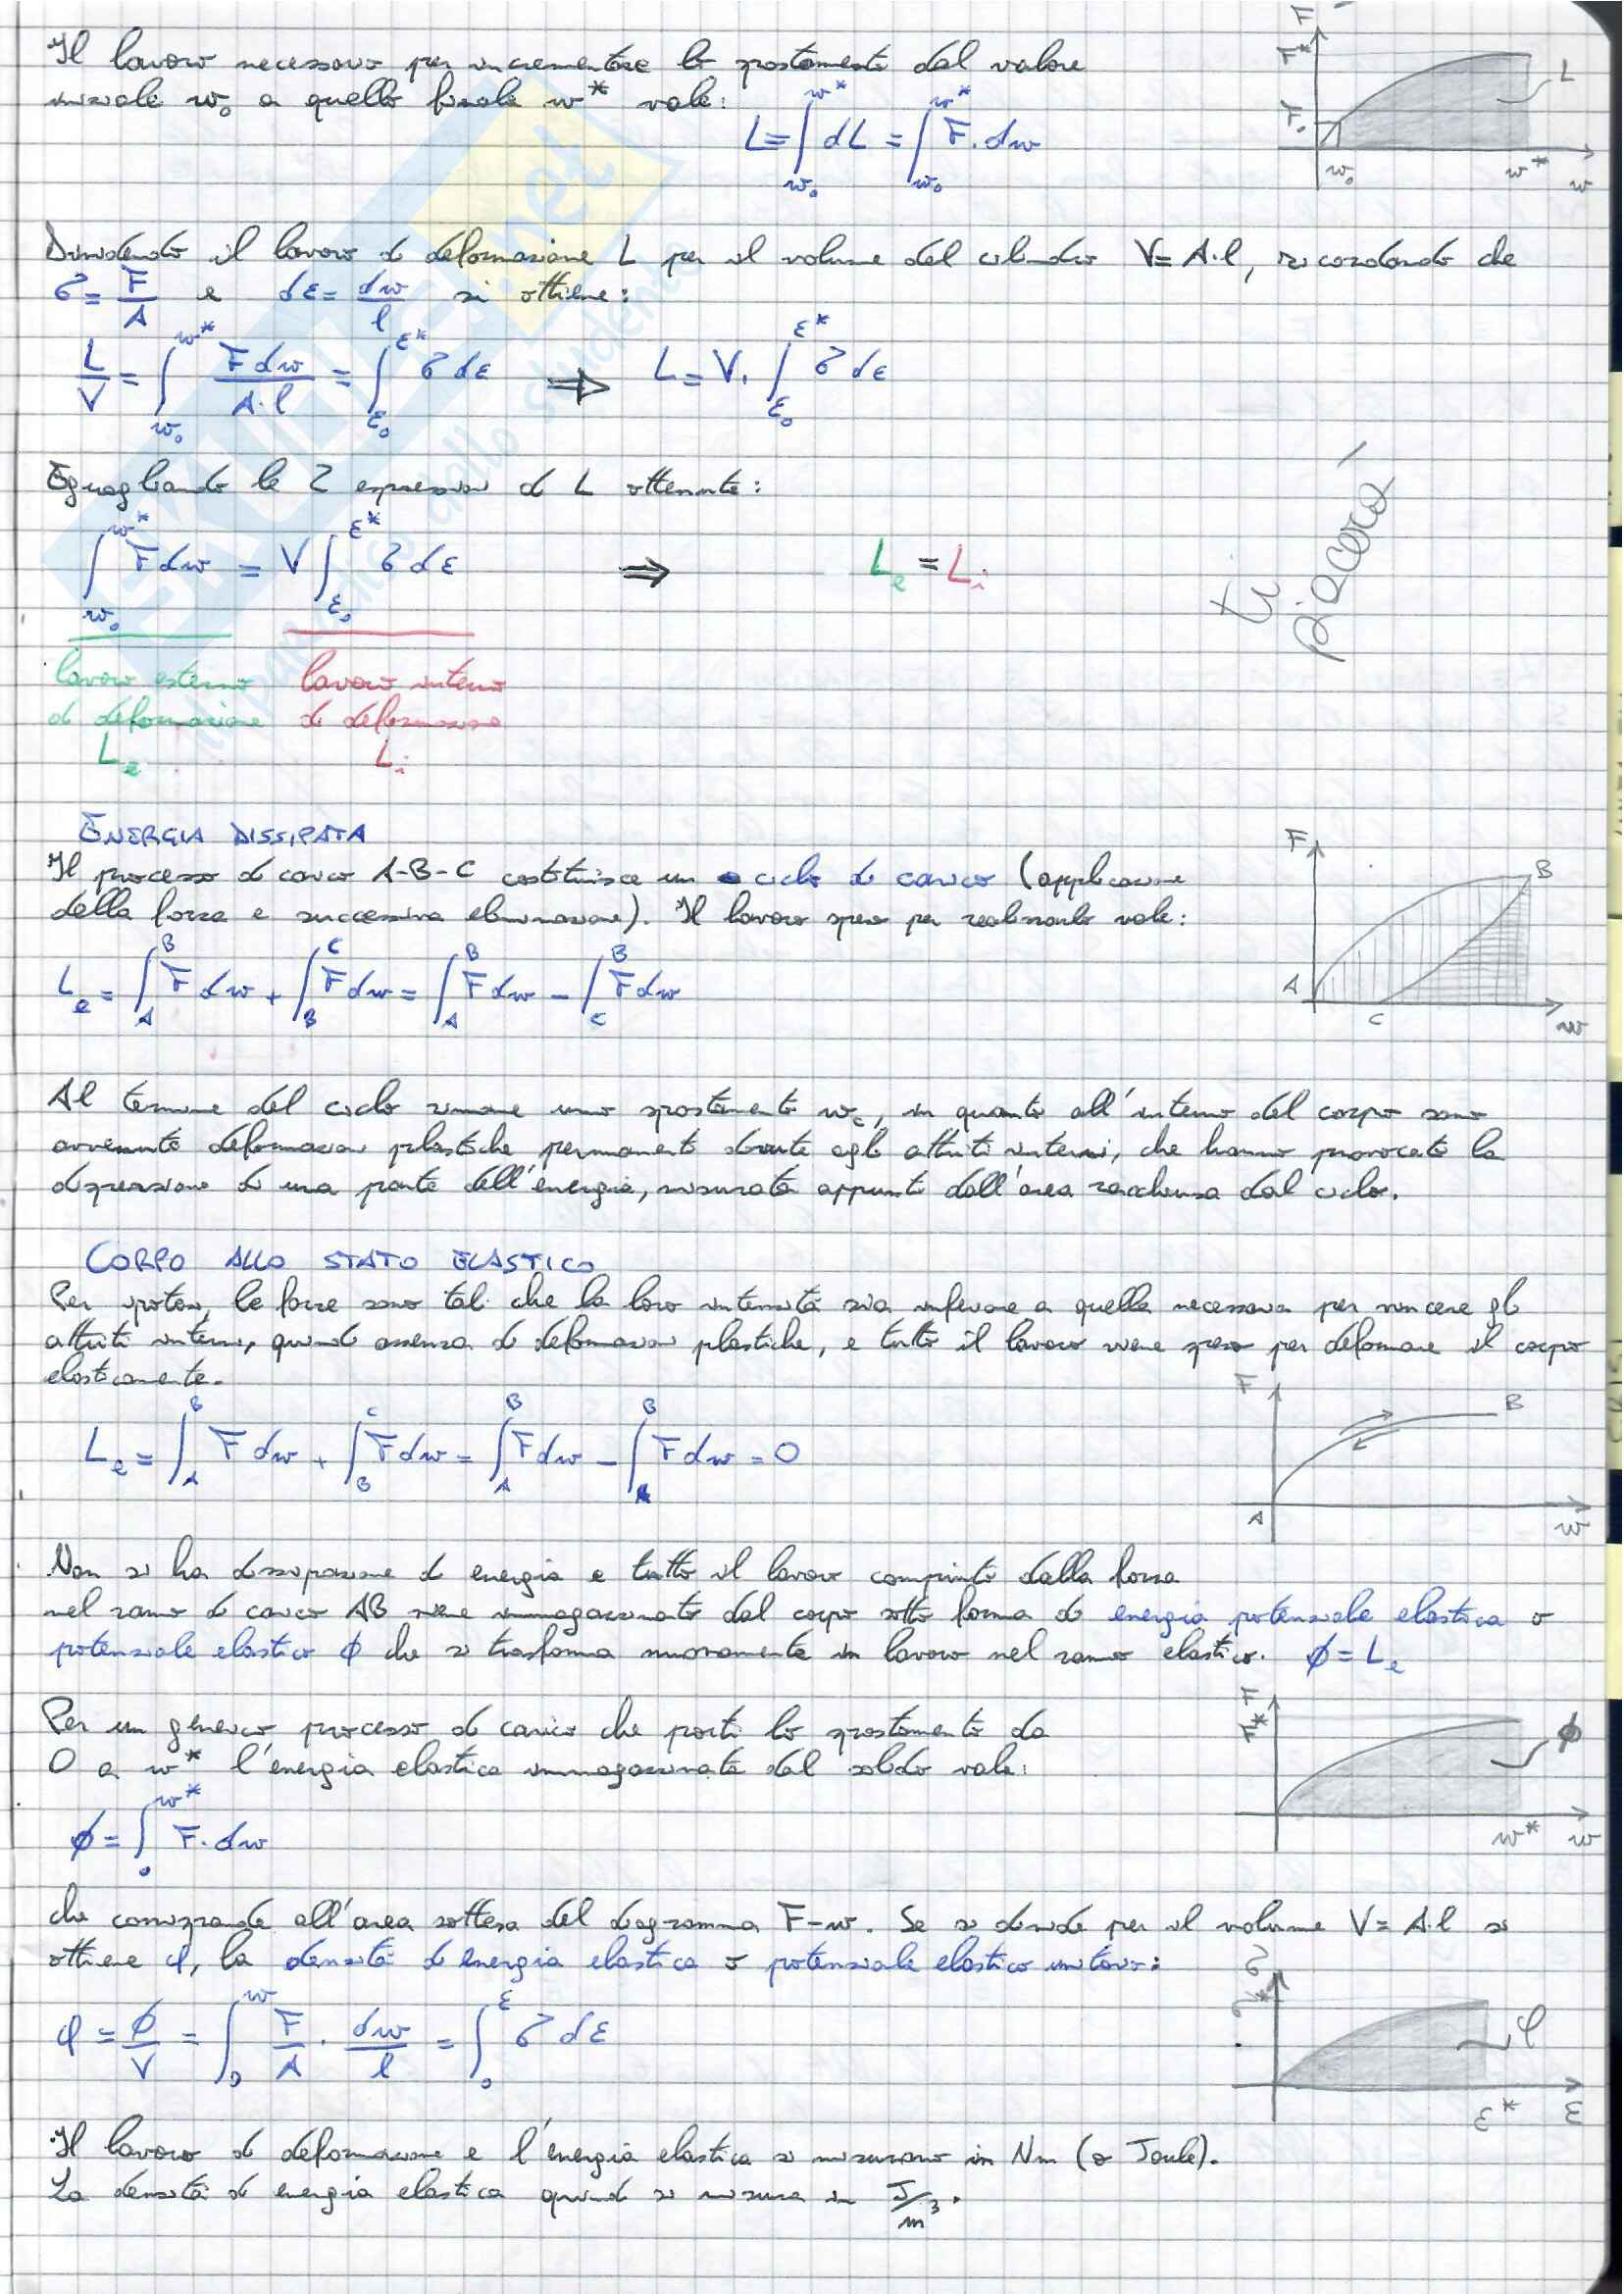 Il lavoro necessario per incrementare lo spostamento dal valore
iniziale w₀ a quello finale w* vale:
L = ∫_{w₀}^{w*} dL = ∫_{w₀}^{w*} F · dw
F
F*
F₀
L
w₀
w*
w
Dividendo il lavoro di deformazione L per il volume del cilindro V = A·l, ricordando che
σ = F/A e dε = dw/l si ottiene:
L/V = ∫_{w₀}^{w*} F dw/A·l = ∫_{ε₀}^{ε*} σ dε ⇒ L = V · ∫_{ε₀}^{ε*} σ dε
Eguagliando le 2 espressioni di L ottenute:
∫_{w₀}^{w*} F dw = V ∫_{ε₀}^{ε*} σ dε ⇒ Lₑ = Lᵢ
ti
piacerà!
lavoro esterno lavoro interno
di deformazione di deformazione
Lₑ Lᵢ
ENERGIA DISSIPATA
Il processo di carico A-B-C costituisce un ciclo di carico (applicazione
della forza e successiva eliminazione). Il lavoro speso per realizzarlo vale:
Lₑ = ∫_A^B F dw + ∫_B^C F dw = ∫_A^B F dw − ∫_C^B F dw
F
B
A
C
w
Al termine del ciclo rimane uno spostamento w_c, in quanto all'interno del corpo sono
avvenute deformazioni plastiche permanenti dovute agli attriti interni, che hanno provocato la
dispersione di una parte dell'energia, misurata appunto dall'area racchiusa dal ciclo.
CORPO ALLO STATO ELASTICO
Per ipotesi, le forze sono tali che la loro intensità sia inferiore a quella necessaria per vincere gli
attriti interni, quindi assenza di deformazioni plastiche, e tutto il lavoro viene speso per deformare il corpo
elasticamente.
Lₑ = ∫_A^B F dw + ∫_B^C F dw = ∫_A^B F dw − ∫_A^B F dw = 0
F
B
A
w
Non si ha dissipazione di energia e tutto il lavoro compiuto dalla forza
nel ramo di carico AB viene immagazzinato dal corpo sotto forma di energia potenziale elastica o
potenziale elastico ϕ che si trasforma nuovamente in lavoro nel ramo elastico. ϕ = Lₑ
Per un generico processo di carico che porti lo spostamento da
0 a w* l'energia elastica immagazzinata dal solido vale:
ϕ = ∫_0^{w*} F · dw
F
F*
ϕ
w*
w
che corrisponde all'area sottesa del diagramma F-w. Se si divide per il volume V = A·l si
ottiene φ, la densità di energia elastica o potenziale elastico unitario:
φ = ϕ/V = ∫_0^w F/A · dw/l = ∫_0^ε σ dε
σ
σ*
φ
ε*
ε
Il lavoro di deformazione e l'energia elastica si misurano in Nm (o Joule).
La densità di energia elastica quindi si misura in J/m³.